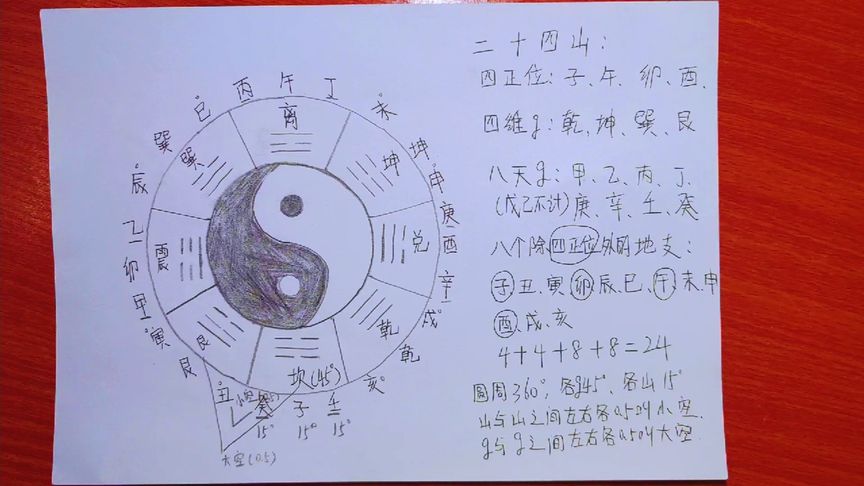 二十四山:
四正位:子、午、卯、酉、
四维g:乾、坤、巽、艮
八天g:甲、乙、丙、丁、
(戊己不计)庚、辛、壬、癸
八个除四正位外的地支:
子、丑、寅、卯、辰、巳、午、未、申
酉、戌、亥
4+4+8+8=24
圆周360°,各g45°、各山15°
山与山之间左右各
小空
g与g之间左右各
大空
丙
午
丁
未
坤
申
庚
酉
辛
戌
乾
亥
壬
子
癸
丑
艮
寅
甲
卯
乙
辰
巽
巳
离
坤
兑
乾
坎(45°)
艮
震
巽
小空
15°
15°
15°
大空(0.5)